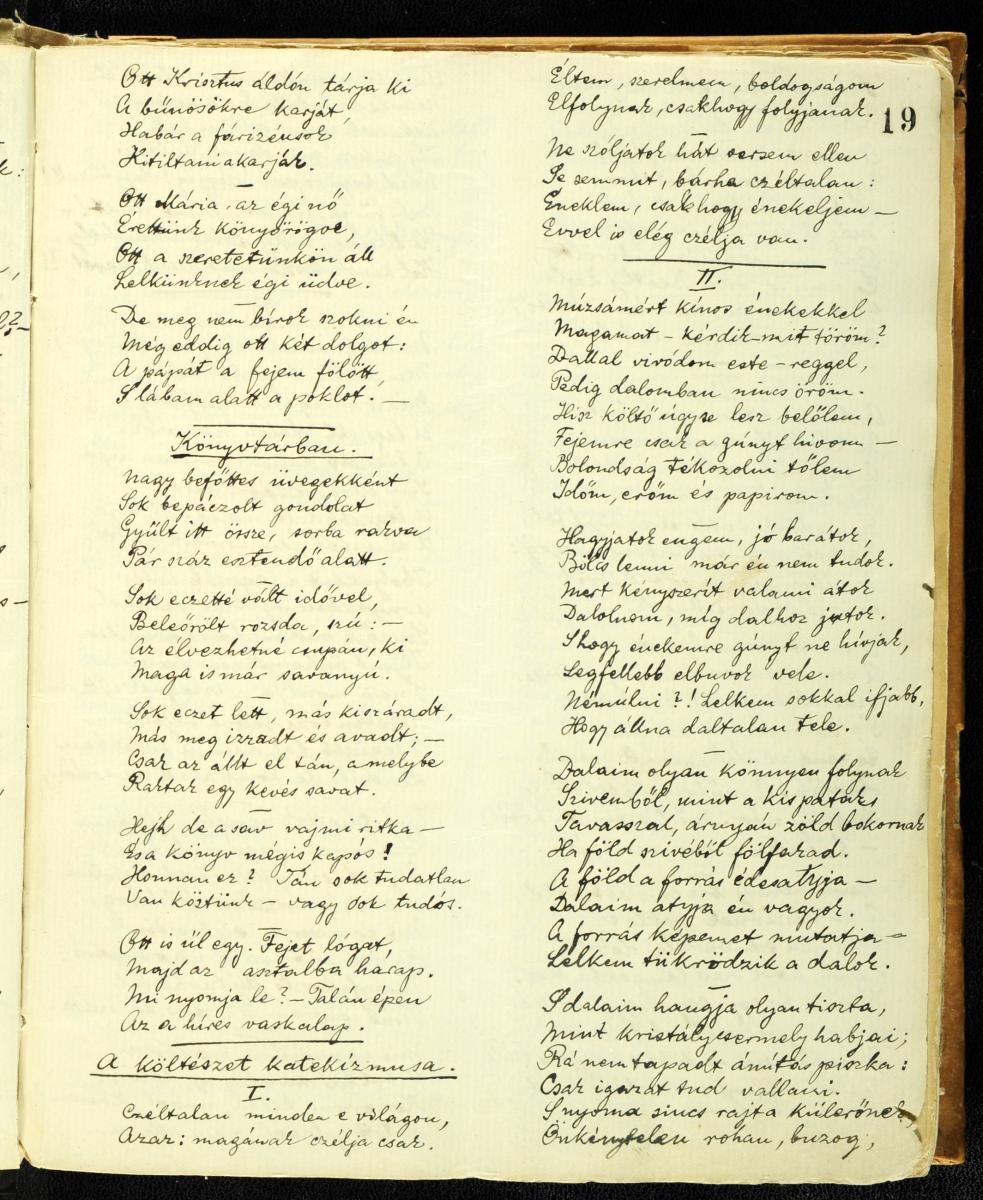 Ott Krisztus áldón tárja ki
A bűnösökre karját,
Habár a fárizéusok
Kitiltani akarják.
Ott Mária, az égi nő
Érettünk könyörögve,
Ott a szeretetünkön áll
Lelkünknek égi üdve.
De meg nem bírok szokni én
Még eddig ott két dolgot:
A pápát a fejem fölött,
S lábam alatt a poklot. —
Könyvtárban.
Nagy befőttes üvegekként
Sok bepáczolt gondolat
Gyűlt itt össze, sorba rakva
Pár száz esztendő alatt.
Sok eczetté vált idővel,
Beleőrölt rozsda, szú: —
Az élvezhetné csupán, ki
Maga is már savanyú.
Sok eczet lett, más kiszáradt,
Más megizzadt és avadt; —
Csak az állt el tán, a melybe
Raktak egy kevés savat.
Hejh de a sav vajmi ritka —
És a könyv mégis kapós!
Honnan ez? Tán sok tudatlan
Van köztünk — vagy sok tudós.
Ott is ül egy. Fejet lógat,
Majd az asztalba harap.
Mi nyomja le? — Talán épen
Az a híres vaskalap.
A költészet katekizmusa.
I.
Czéltalan minden e világon,
Azaz: magának czélja csak.
19
Éltem, szerelmem, boldogságom
Elfolynak, csakhogy folyjanak.
Ne szóljatok hát versem ellen
Se semmit, bárha czéltalan:
Éneklem, csakhogy énekeljem —
Evvel is elég czélja van.
II.
Múzsámért kínos énekekkel
Magamat — kérdik — mit töröm?
Dallal vivódom este-reggel,
Pedig dalomban nincs öröm.
Hisz költő úgyse lesz belőlem,
Fejemre csak a gúnyt hivom —
Bolondság tékozolni tőlem
Időm, erőm és papirom.
Hagyjatok engem, jó barátok,
Bölcs lenni már én nem tudok.
Mert kényszerít valami átok
Dalolnom, míg dalhoz jutok.
S hogy énekemre gúnyt ne hívjak,
Legfellebb elbuvok vele.
Némúlni?! Lelkem sokkal ifjabb,
Hogy állna daltalan tele.
Dalaim olyan könnyen folynak
Szivemből, mint a kis patak
Tavasszal, árnyán zöld bokornak
Ha föld szivéből fölfakad.
A föld a forrás édesatyja —
Dalaim atyja én vagyok.
A forrás képemet mutatja —
Lelkem tükrödzik a dalok.
S dalaim hangja olyan tiszta,
Mint kristálycsermely habjai;
Rá nem tapadt ámítás piszka:
Csak igazat tud vallani.
S nyoma sincs rajta külerőnek,
Önkénytelen rohan, buzog,